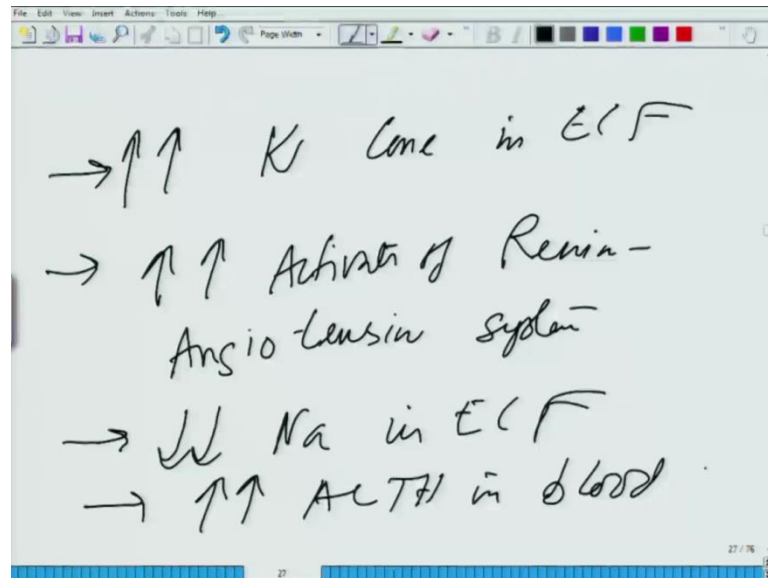 File Edit View Insert Actions Tools Help
Page Width
→ ↑↑ K Conc in ECF
→ ↑↑ Activatn of Renin-
Angiotensin system
→ ↓↓ Na in ECF
→ ↑↑ ACTH in blood
27 / 76
27